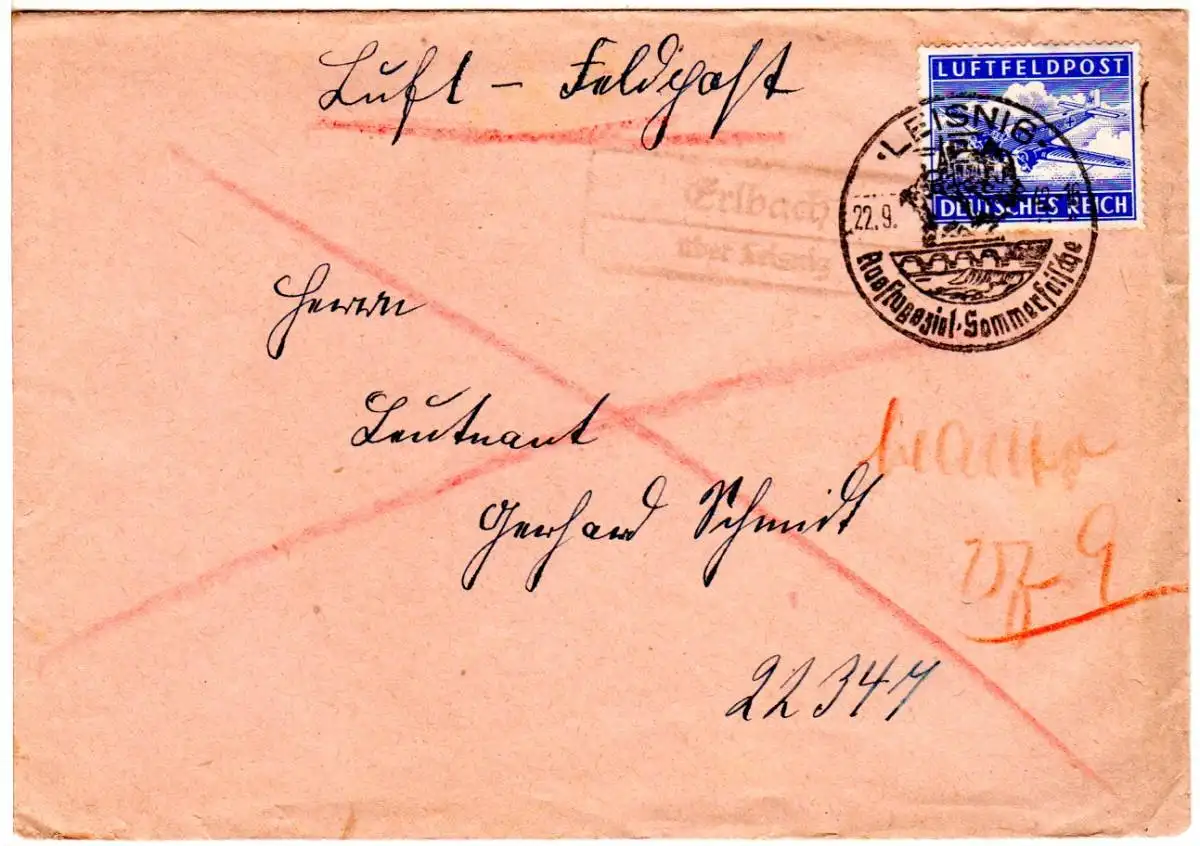 Luft - Feldpost
LUFTFELDPOST
DEUTSCHES REICH
LEISNIG
22.9. 42.-16
Ausflugsziel · Sommerfrische
Erlbach
über Leisnig
Herrn
Leutnant
Gerhard Schmidt
22347